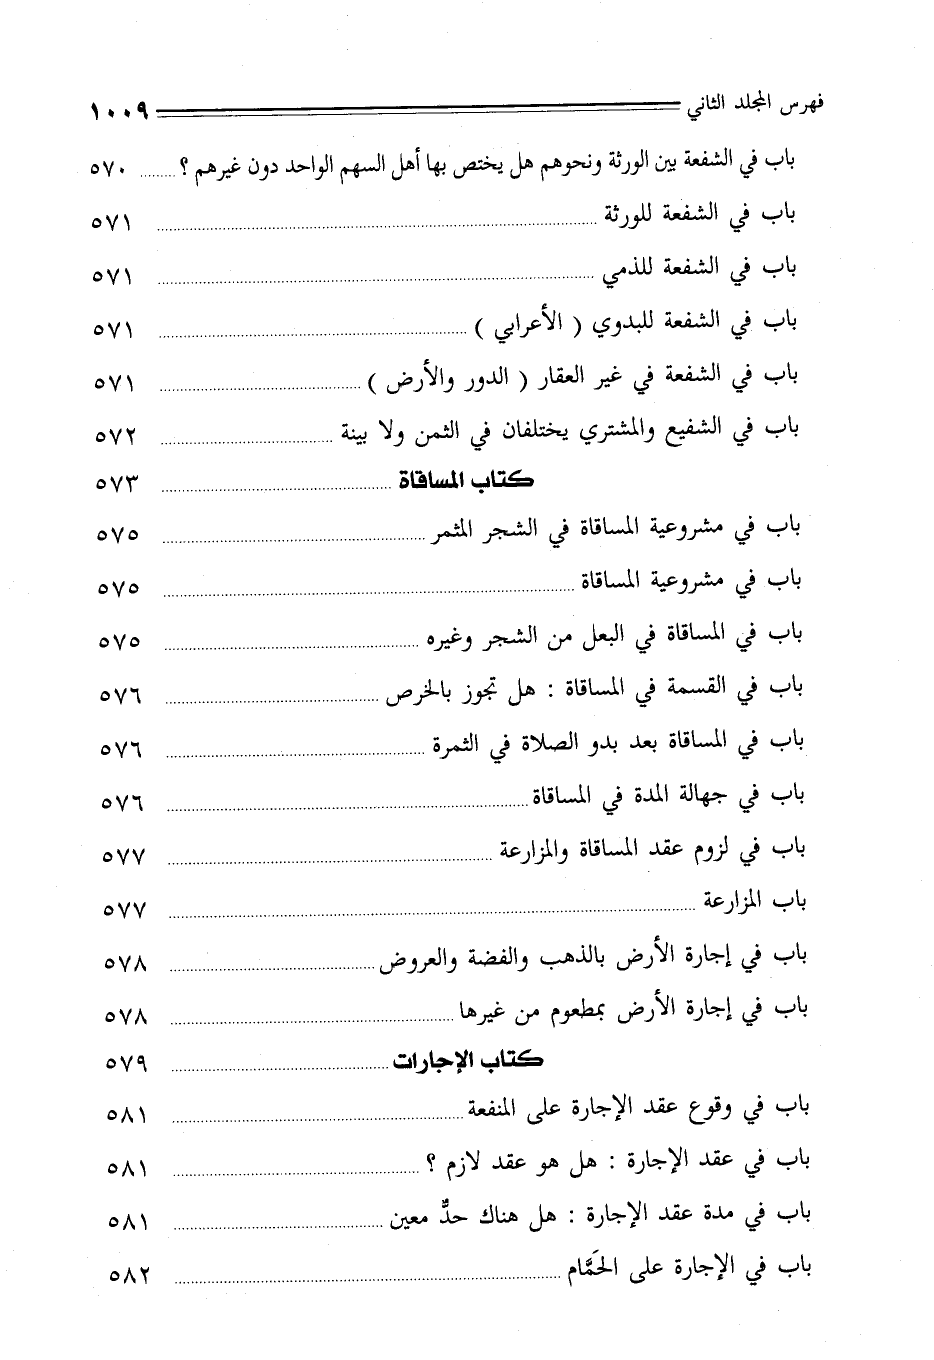 فهرس المجلد الثاني ١٠٠٩
باب في الشفعة بين الورثة ونحوهم هل يختص بها أهل السهم الواحد دون غيرهم ؟ ........ ٥٧٠
باب في الشفعة للورثة ........ ٥٧١
باب في الشفعة للذمي ........ ٥٧١
باب في الشفعة للبدوي ( الأعرابي ) ........ ٥٧١
باب في الشفعة في غير العقار ( الدور والأرض ) ........ ٥٧١
باب في الشفيع والمشتري يختلفان في الثمن ولا بينة ........ ٥٧٢
كتاب المساقاة ........ ٥٧٣
باب في مشروعية المساقاة في الشجر المثمر ........ ٥٧٥
باب في مشروعية المساقاة ........ ٥٧٥
باب في المساقاة في البعل من الشجر وغيره ........ ٥٧٥
باب في القسمة في المساقاة : هل تجوز بالخرص ........ ٥٧٦
باب في المساقاة بعد بدو الصلاة في الثمرة ........ ٥٧٦
باب في جهالة المدة في المساقاة ........ ٥٧٦
باب في لزوم عقد المساقاة والمزارعة ........ ٥٧٧
باب المزارعة ........ ٥٧٧
باب في إجارة الأرض بالذهب والفضة والعروض ........ ٥٧٨
باب في إجارة الأرض بمطعوم من غيرها ........ ٥٧٨
كتاب الإجارات ........ ٥٧٩
باب في وقوع عقد الإجارة على المنفعة ........ ٥٨١
باب في عقد الإجارة : هل هو عقد لازم ؟ ........ ٥٨١
باب في مدة عقد الإجارة : هل هناك حدٌّ معين ........ ٥٨١
باب في الإجارة على الحَمَّام ........ ٥٨٢